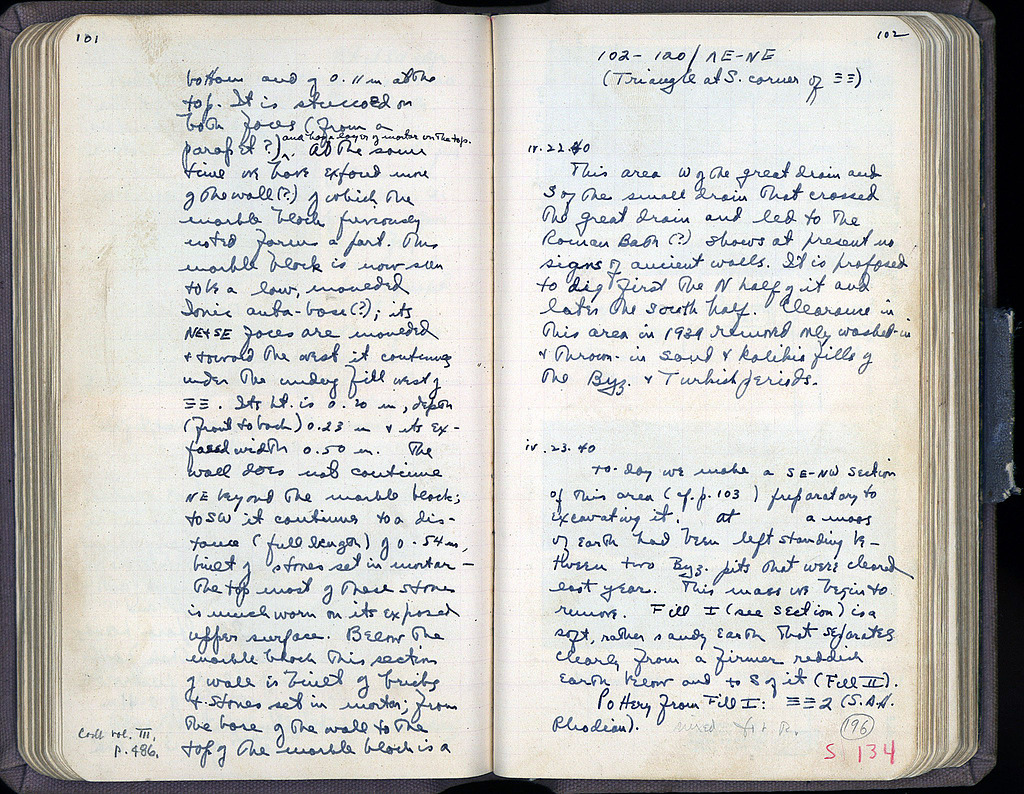 101
bottom and of 0.11 m at the
top. It is stuccoed on
both faces (from a
parapet?) and has a layer of mortar on the top. At the same
time we have exposed more
of the wall (?) of which the
marble block previously
noted forms a part. This
marble block is now seen
to be a low, moulded
Ionic anta-base (?); its
NE + SE faces are moulded
+ toward the west it continues
under the undug fill west of
ΞΞ. Its ht. is 0.20 m, depth
(front to back) 0.23 m + its ex-
posed width 0.50 m. The
wall does not continue
NE beyond the marble block;
to SW it continues to a dis-
tance (full length) of 0.54 m,
built of stones set in mortar –
The top most of these stones
is much worn on its exposed
upper surface. Below the
marble block this section
of wall is built of bricks
+ stones set in mortar; from
the base of the wall to the
top of the marble block is a
Contd vol. III,
p. 486.
102
102 - 120 / ΛE - NE
(Triangle at S. corner of ΞΞ)
iv. 22. 40
This area W of the great drain and
S of the small drain that crossed
the great drain and led to the
Roman Bath (?) shows at present no
signs of ancient walls. It is proposed
to dig first the N half of it and
later the South half. Clearance in
this area in 1939 removed only washed-in
+ thrown-in sand + kalikia fills of
the Byz. + Turkish periods.
iv. 23. 40
To-day we make a SE-NW section
of this area (cf. p. 103) preparatory to
excavating it. At a mass
of earth had been left standing be-
tween two Byz. pits that were cleared
last year. This mass we begin to
remove. Fill I (see section) is a
soft, rather sandy earth that separates
clearly from a firmer reddish
earth below and to S of it (Fill II).
Pottery from Fill I: ΞΞ 2 (S.A.H.
Rhodian). mixed + R. 196
S 134